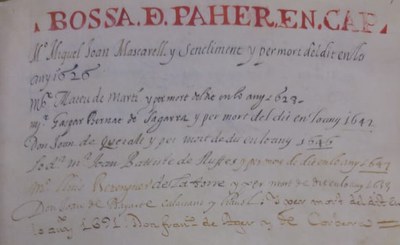 BOSSA. Đ. PAHER. EN. CAP
Mº Miquel Joan Mascarell y Sentiment y per mort del dit en lo
any 1626
Mº Mateu de Martí y per mort del dit en lo any 1623
mº Gaspar Bernat de Sagarra y per mort del dit en lo any 1642
Don Joan de Queralt y per mort de dit en lo any 1646
mº Joan Batiste de y per mort de dit en lo any 1647
Mº Lluis Berenguer de la torre y per mort de dit en lo any
Don Joan de y per mort del dit en
lo any 1691. Don de y de